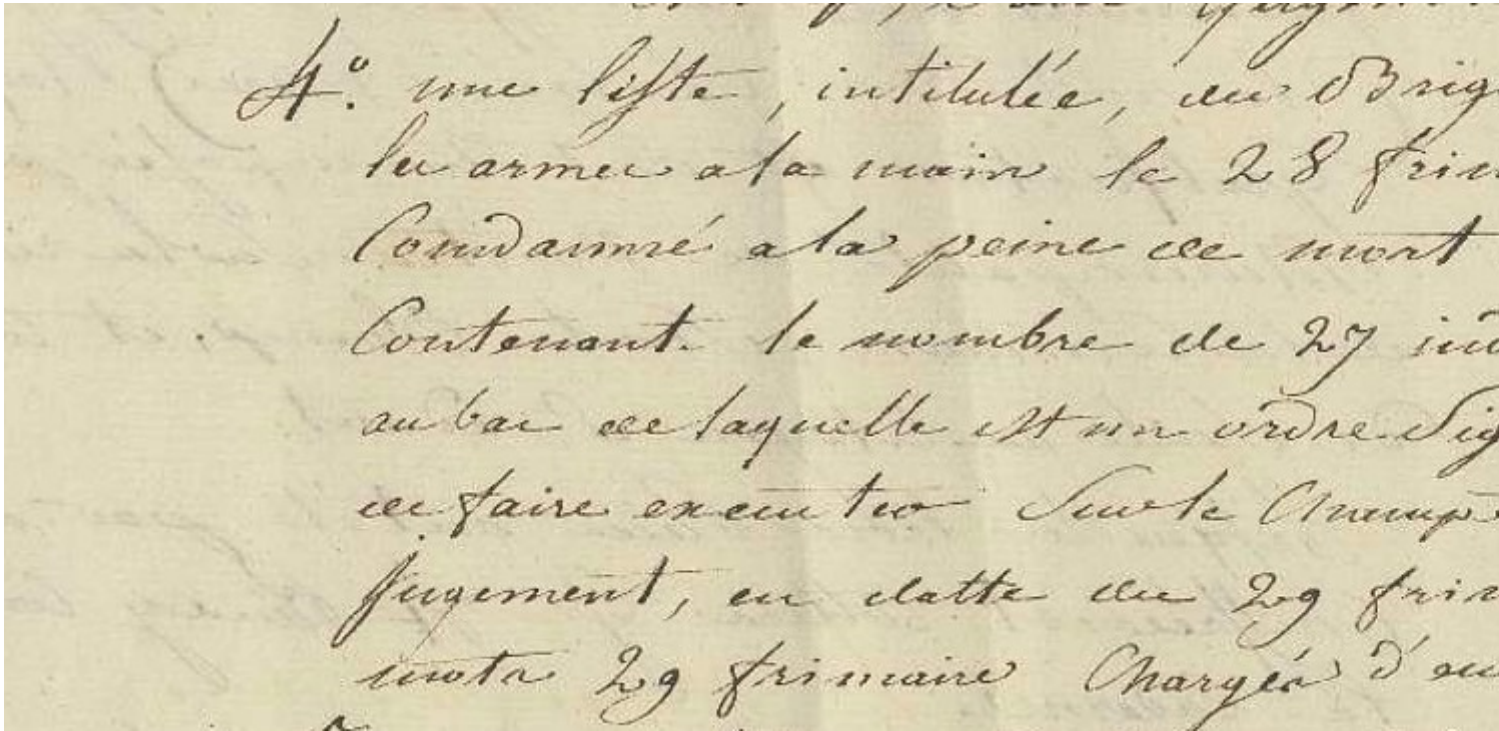 4.° une liste, intitulée, des Brig
les armes a la main le 28 frim
Condamné a la peine de mort
Contenant le nombre de 27 ind
au bas de laquelle est un ordre Sig
de faire executer Sur le Champ
jugement, en datte du 29 frim
mots 29 frimaire Chargés d'en